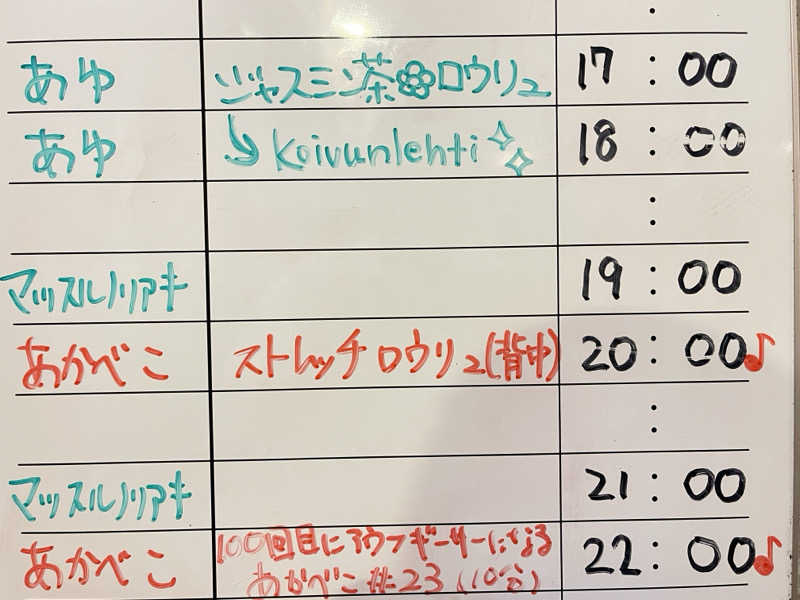 あゆ ジャスミン茶ロウリュ 17:00
あゆ koivunlehti 18:00
:
マッスルノリアキ 19:00
あかべこ ストレッチロウリュ(背中) 20:00♪
:
マッスルノリアキ 21:00
あかべこ 100回目にアウフギーサーになる 22:00♪
あかべこ#23(10分)